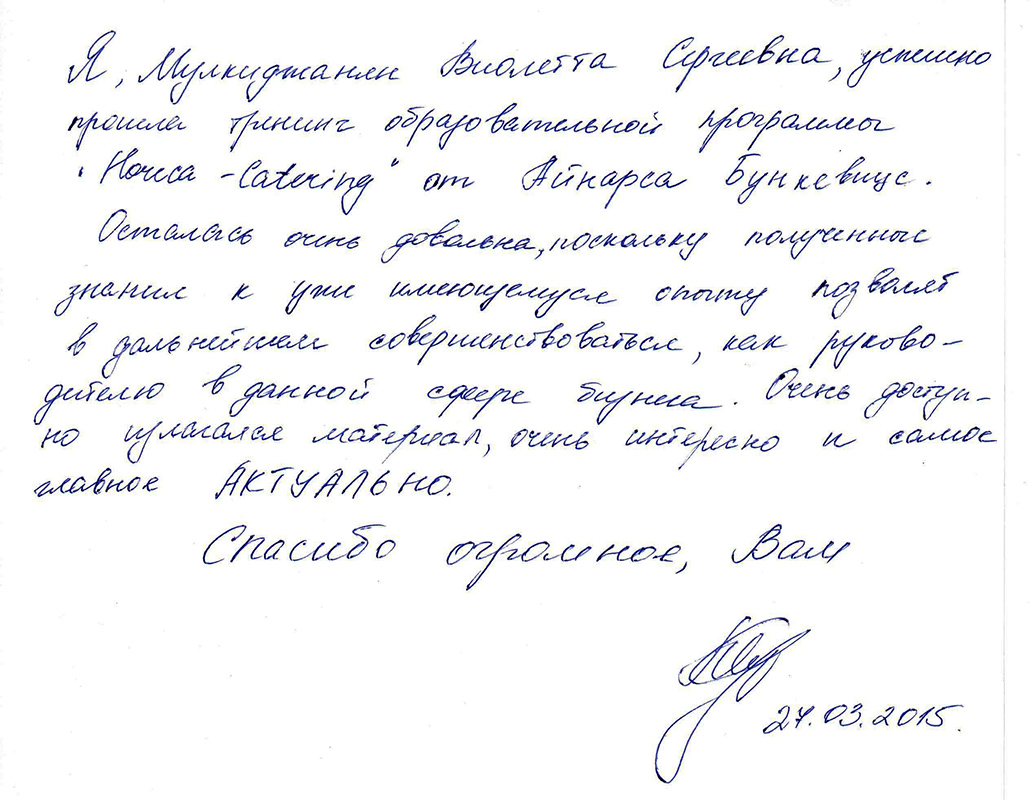 Я, Мулкиджанян Виолетта Сергеевна, успешно
прошла тренинг образовательной программы
"Horeca - Catering" от Айнарса Бункевицс.
Осталась очень довольна, поскольку полученные
знания к уже имеющемуся опыту позволят
в дальнейшем совершенствоваться, как руково-
дителю в данной сфере бизнеса. Очень доступ-
но излагался материал, очень интересно и самое
главное АКТУАЛЬНО.
Спасибо огромное, Вам
27.03.2015.